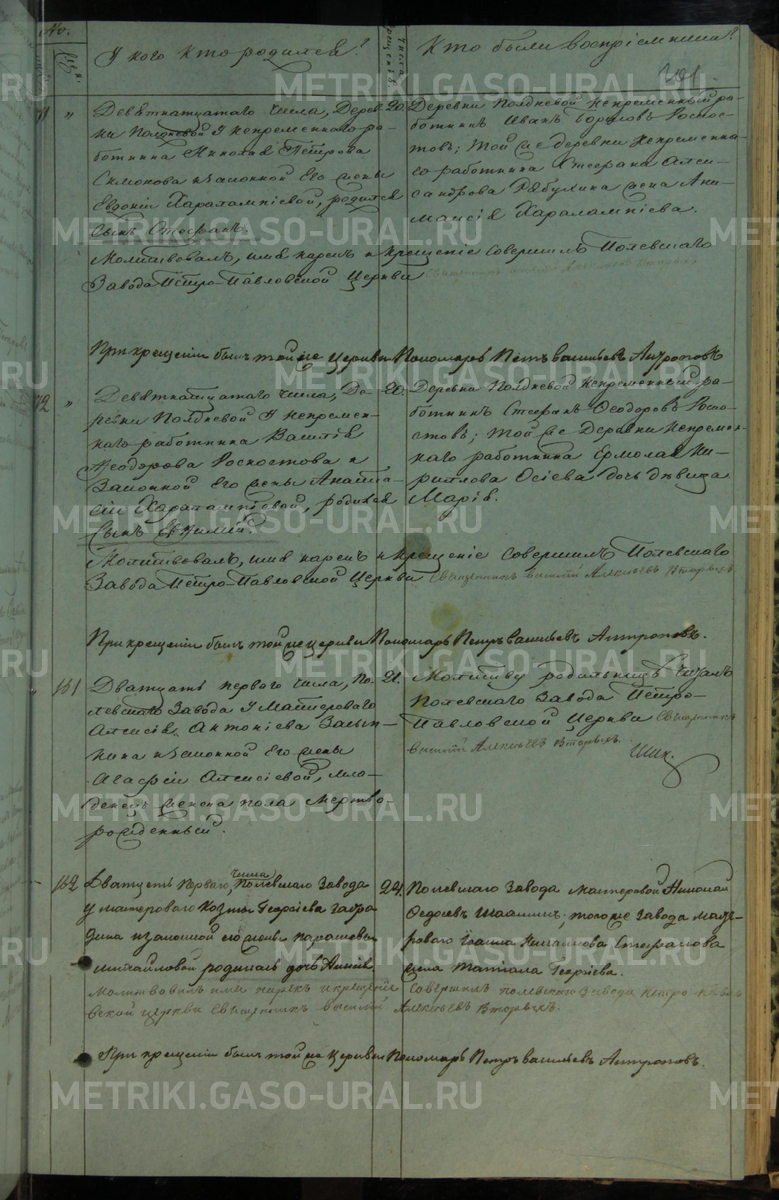 No.
У кого кто родился?
Числа крещенія
Кто были воспріемники?
201.
71 " Девѣтнатцатаго Числа, Дерев-
ни Полдневой У непременнаго ра-
ботника Николая Петрова
и законной Его жены
Евдокіи Харалампіевой, родился
Сынъ Стефанъ.
20. Деревни Полдневой Непременный ра-
ботникъ Иванъ
той же деревни Непременна-
го работника Стефана Алек-
сандрова жена Ани-
Харалампіева.
Молитвовалъ, имя нарекъ и крещеніе совершилъ Полевскаго
Завода Петро-Павловской Церкви Священникъ Василій Алексѣевъ Вторыхъ
При крещеніи былъ той же церкви Пономарь Петръ Васильевъ Антроповъ
72 " Девѣтнатцатаго Числа, Де-
ревни Полдневой У Непремен-
наго работника Василія
Феодорова и
Законной Его жены Анаста-
сіи Харалампіевой, родился
Сынъ Евѳимій.
20. Деревни Полдневой Непременный ра-
ботникъ Стефанъ Феодоровъ
той же Деревни Непремен-
наго работника Ермолая Ки-
рилова Осіева дочь дѣвица
Марія.
Молитвовалъ, имя нарекъ и Крещеніе совершилъ Полевскаго
Завода Петро-Павловской Церкви Священникъ Василій Алексѣевъ Вторыхъ
При крещеніи былъ той же церкви Пономарь Петръ Васильевъ Антроповъ.
161 Дватцать перваго Числа, По-
левскаго Завода У Мастероваго
Алексія Антоніева
и законной Его жены
Агафіи Алексіевой, мла-
денецъ женска пола мертво-
рожденный.
21. Молитву родильницѣ Читалъ
Полевскаго Завода Петро-
Павловской Церкви Священникъ
Василій Алексѣевъ Вторыхъ.
162 Дватцеть перваго числа, Полевскаго Завода
у мастероваго Козмы Георгіева
и законной его жены Параскевы
Михайловой родилась дочь Анисія
24. Полевскаго Завода мастеровой Николай
Федоровъ того же Завода масте-
роваго Іоанна Стефанова
жена Татіана Георгіева.
Молитвовалъ имя нарекъ и крещеніе совершилъ Полевскаго Завода Петро-Павло-
вской церкви Священникъ Василій Алексѣевъ Вторыхъ.
При крещеніи былъ той же Церкви Пономарь Петръ Васильевъ Антроповъ.
METRIKI.GASO-URAL.RU